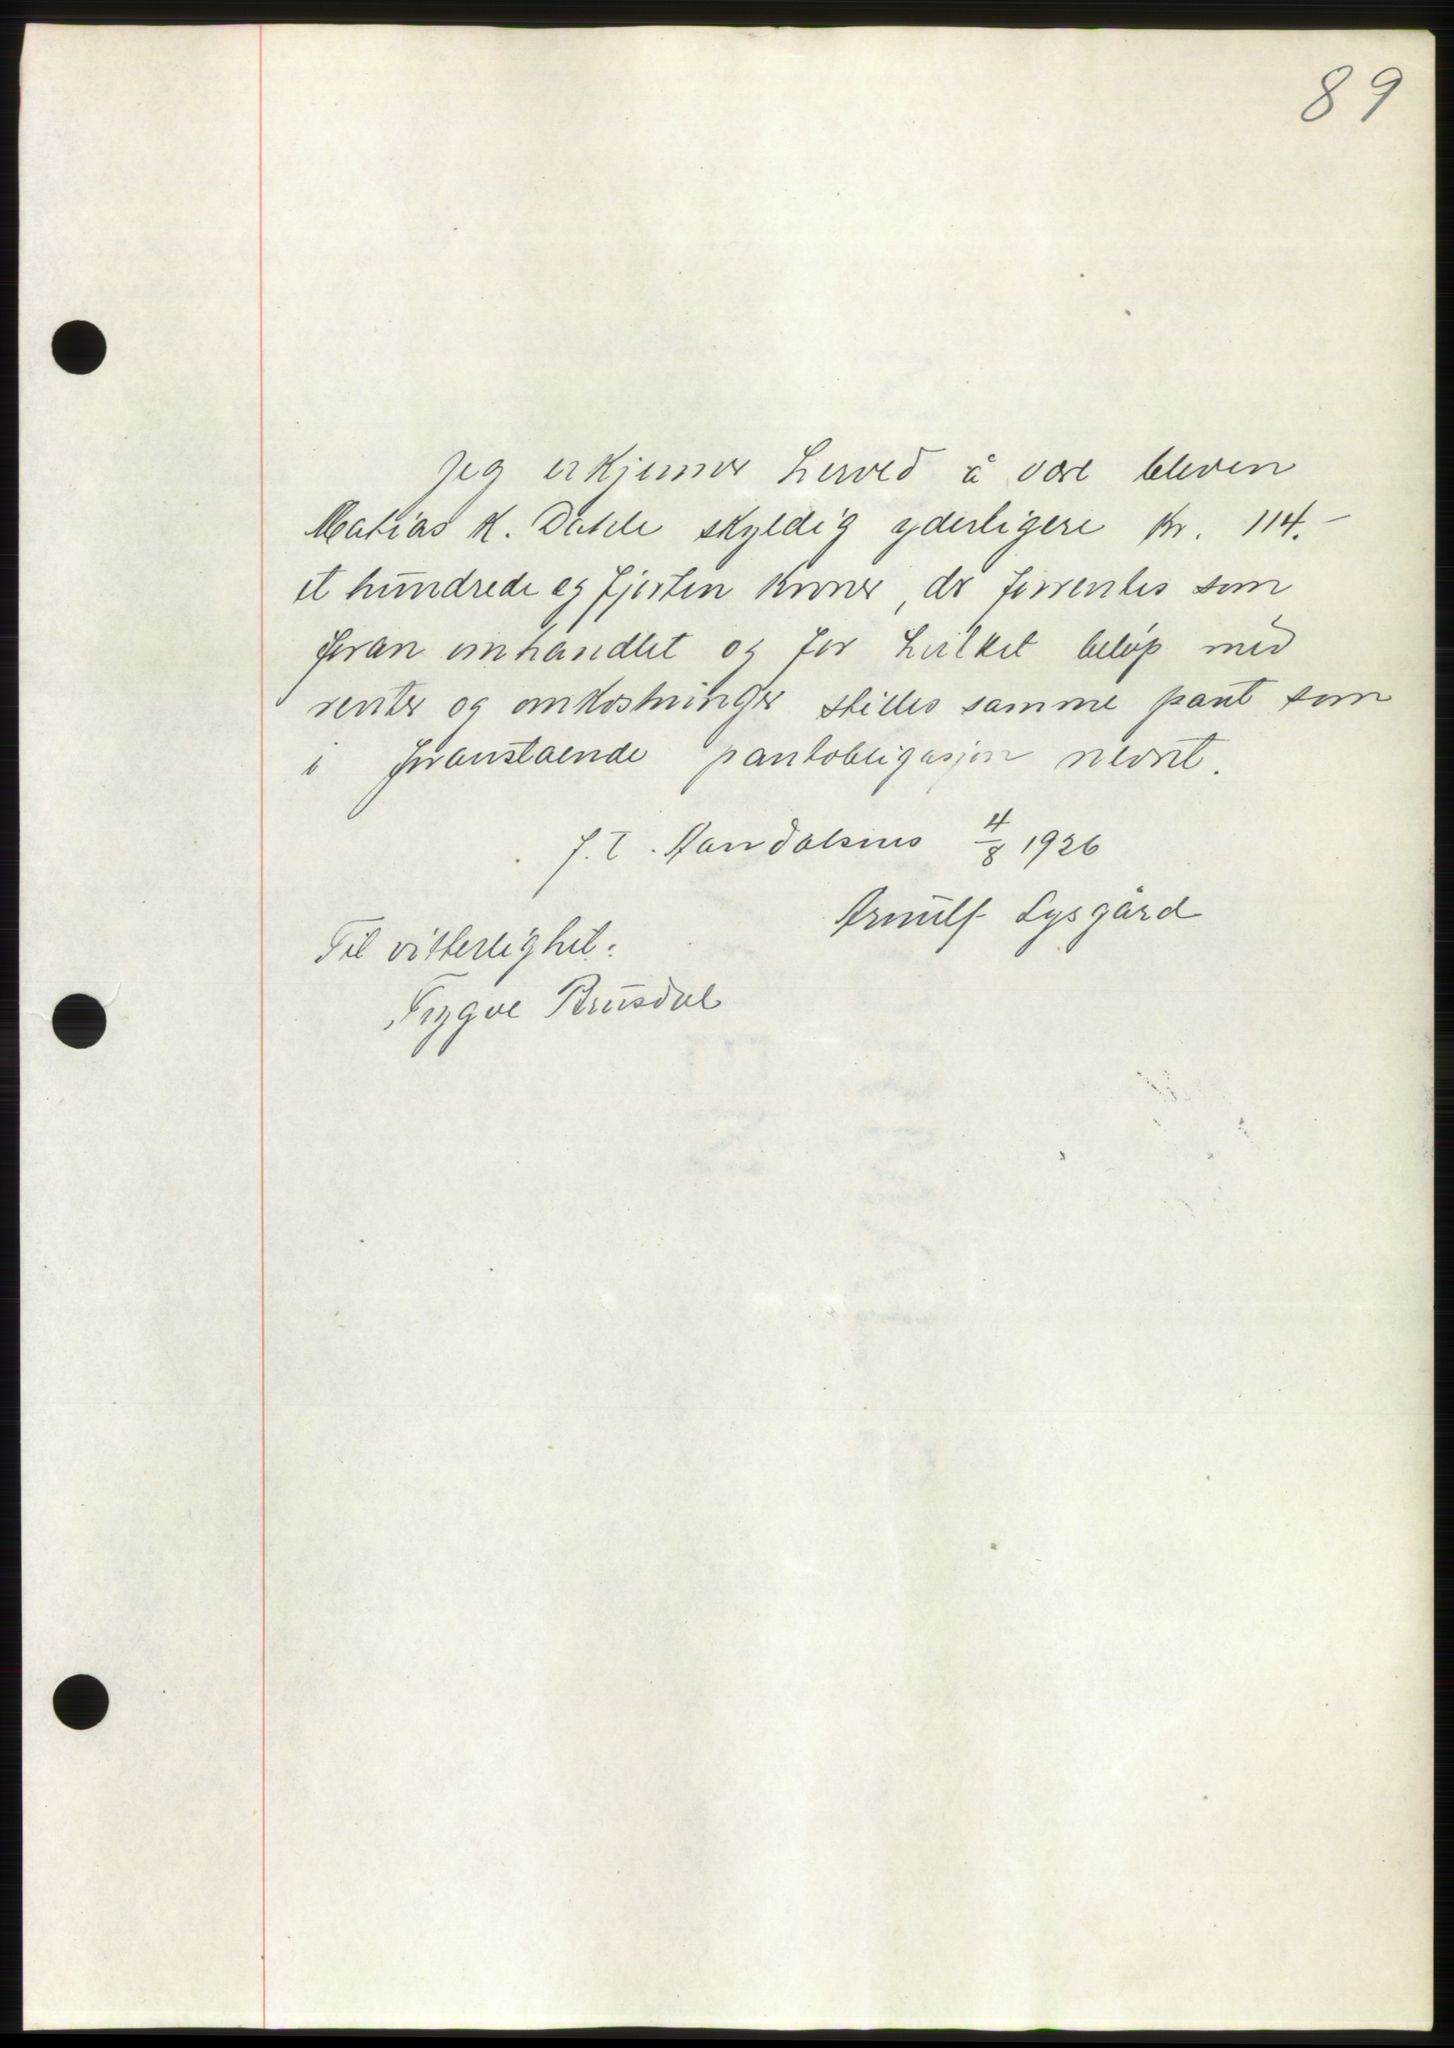 89
Jeg erkjenner herved å være bleven
Matias K. Dahle skyldig yderligere kr. 114.-
et hundrede og fjorten kroner, der forrentes som
foran omhandlet og for hvilket beløp med
renter og omkostninger stilles samme pant som
i foranstaende pantobligasjon nevnt.
p.t. Aandalsnes 4/8 1926
Arnulf Lysgård
Til vitterlighet:
Trygve Brusdal